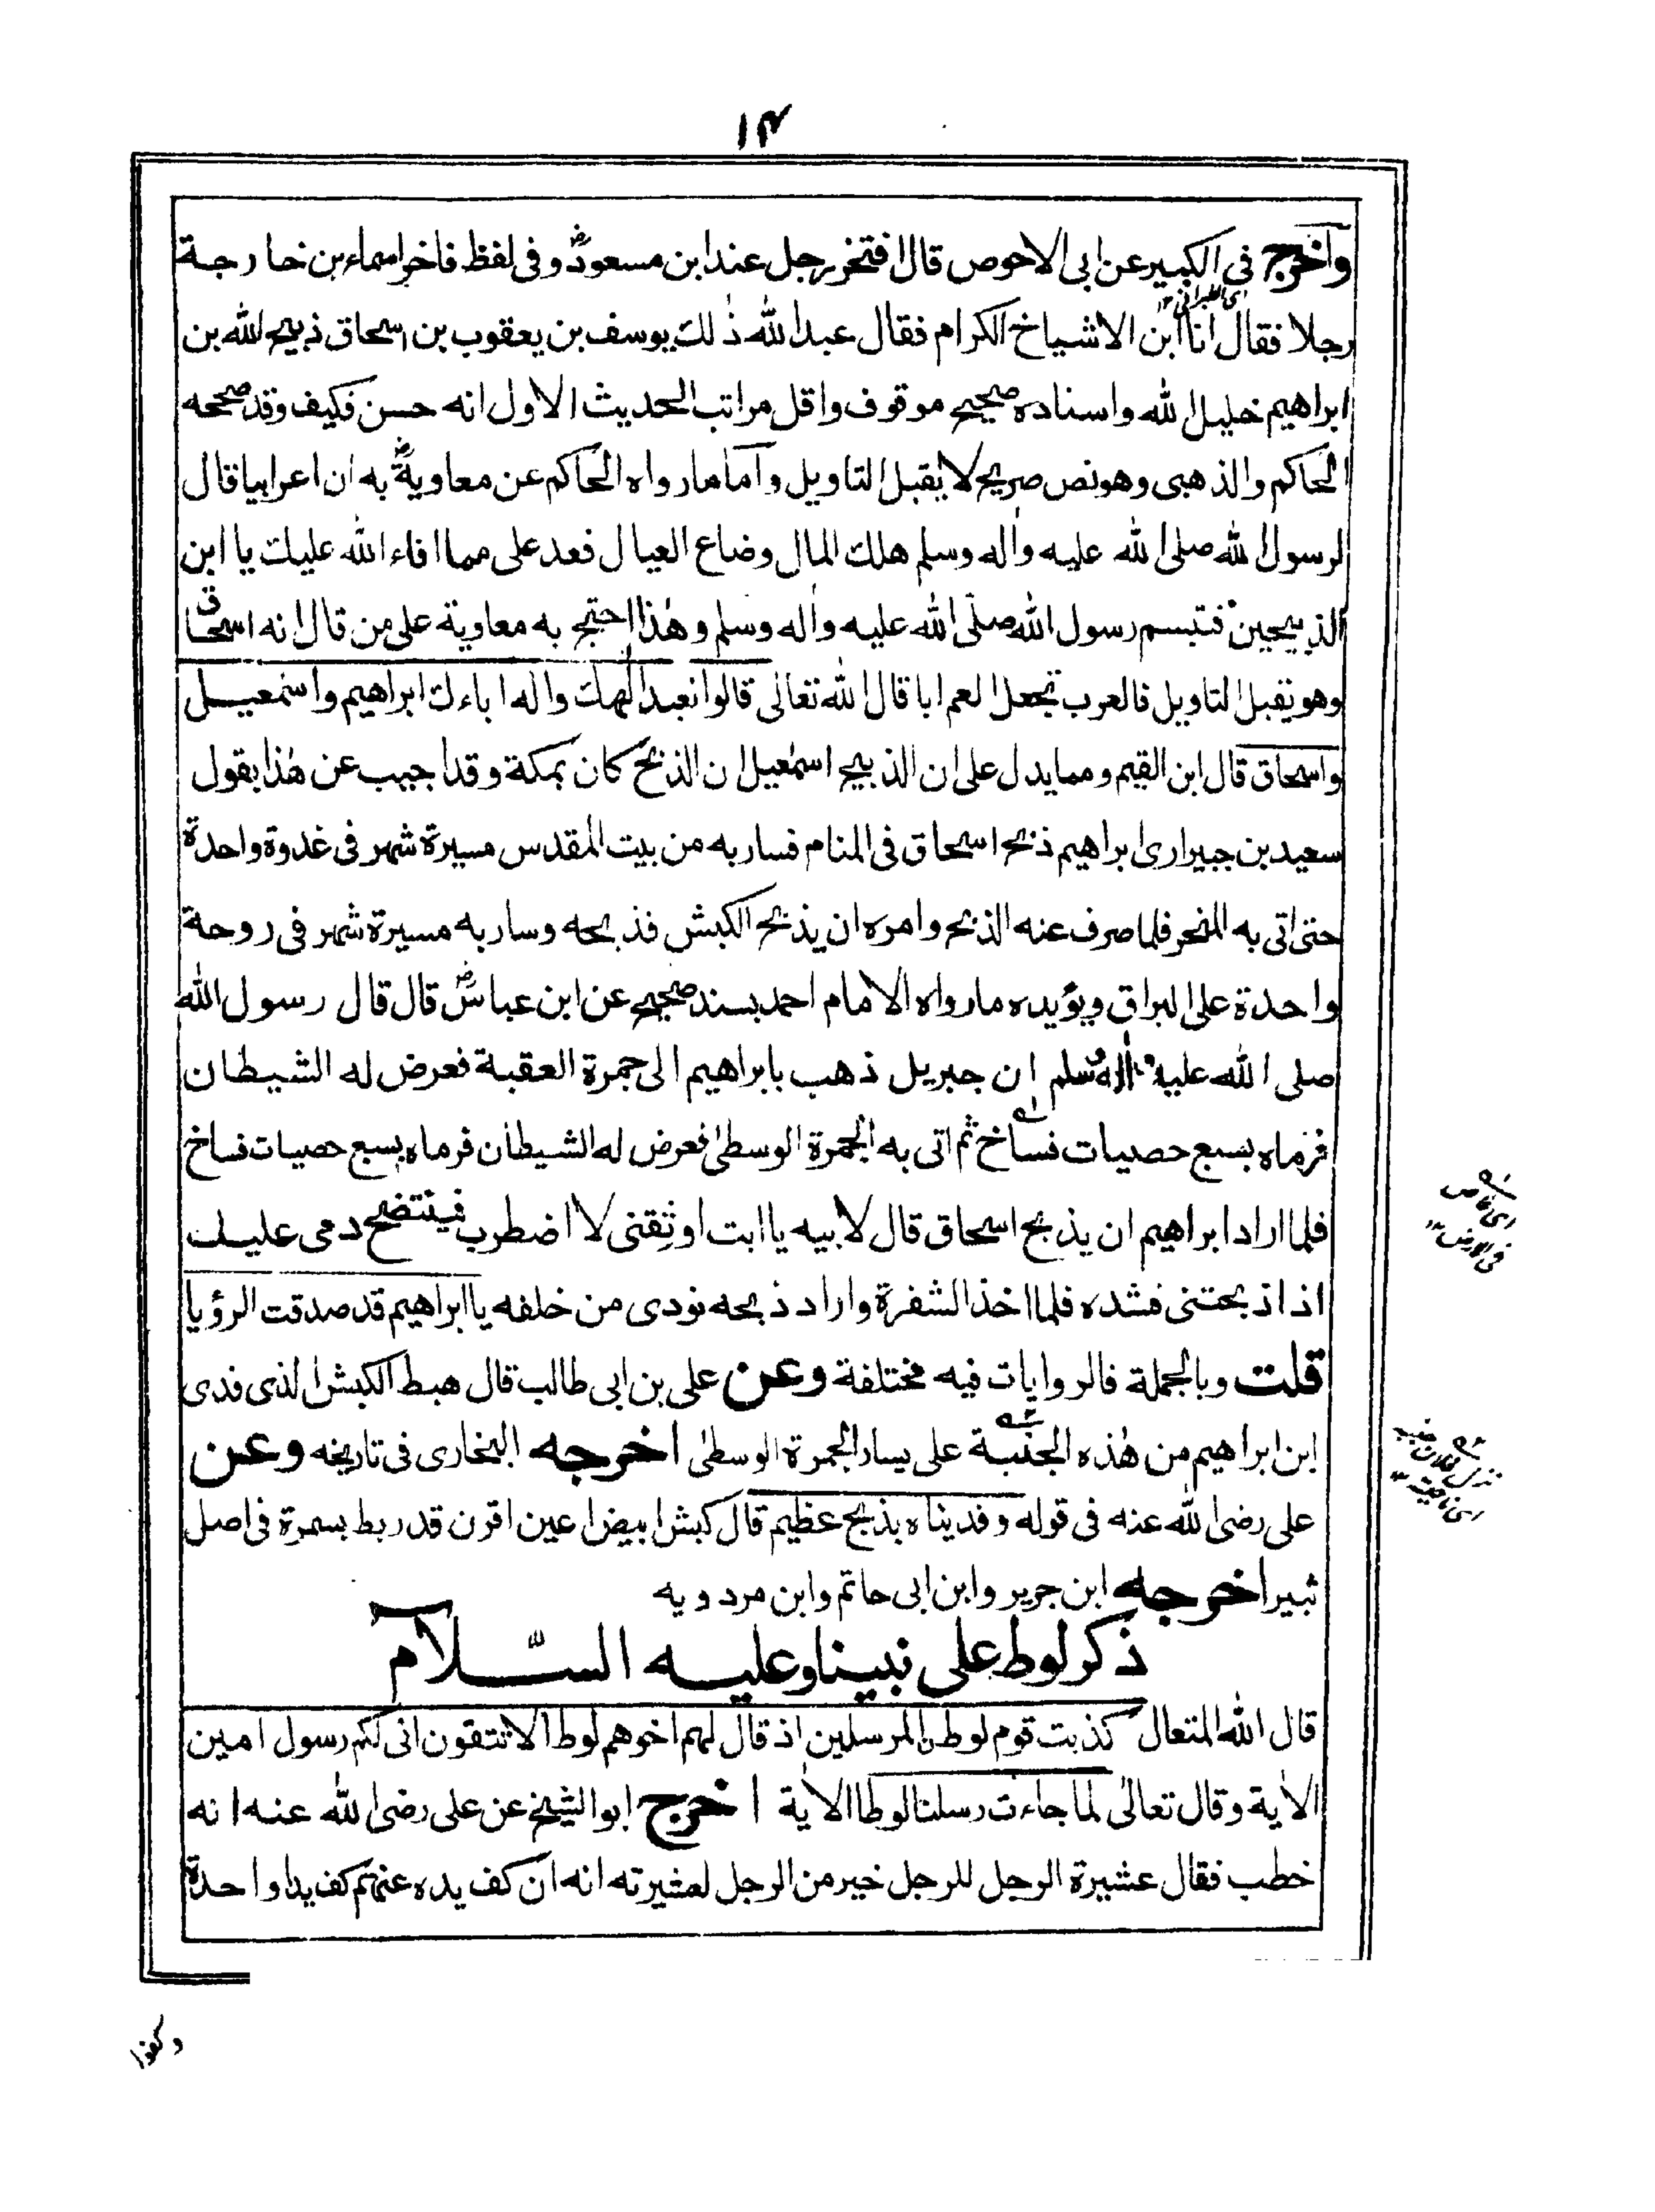 ١٤
واخرج في الكبير عن ابى الاحوص قال افتخر رجل عند ابن مسعودؓ وفى لفظ فاخر اسماء بن خارجة
اى الطبرانى ١٢
رجلا فقال انا ابن الاشياخ الكرام فقال عبد الله ذٰلك يوسف بن يعقوب بن اسحاق ذبيح الله بن
ابراهيم خليل الله واسناده صحيح موقوف واقل مراتب الحديث الاول انه حسن فكيف وقد صححه
الحاكم والذهبى وهو نص صريح لا يقبل التاويل واما ما رواه الحاكم عن معاويةؓ به ان اعرابيا قال
لرسول الله صلى الله عليه واٰله وسلم هلك المال وضاع العيال فعد على مما افاء الله عليك يا ابن
الذبيحين فتبسم رسول الله صلّى الله عليه واٰله وسلم وهٰذا احتج به معاوية على من قال انه اسحاق
وهو يقبل التاويل فالعرب تجعل العم ابا قال الله تعالى قالوا نعبد الٰهك واله اباءك ابراهيم واسمٰعيل
واسحاق قال ابن القيم ومما يدل على ان الذبيح اسمٰعيل ان الذبح كان بمكة وقد اجيب عن هٰذا بقول
سعيد بن جبير ارى ابراهيم ذبح اسحاق فى المنام فسار به من بيت المقدس مسيرة شهر فى غدوة واحدة
حتى اتى به المنحر فلما صرف عنه الذبح وامره ان يذبح الكبش فذبحه وسار به مسيرة شهر فى روحة
واحدة على البراق ويؤيده ما رواه الامام احمد بسند صحيح عن ابن عباسؓ قال قال رسول الله
صلى الله عليه واٰله وسلم ان جبريل ذهب بابراهيم الى جمرة العقبة فعرض له الشيطان
فرماه بسبع حصيات فساخ ثم اتى به الجمرة الوسطىٰ فعرض له الشيطان فرماه بسبع حصيات فساخ
اى غاص
فى الارض ١٢
فلما اراد ابراهيم ان يذبح اسحاق قال لابيه يا ابت اوثِقنى لا اضطرب فينتضح دمى عليك
اذا ذبحتنى فشده فلما اخذ الشفرة واراد ذبحه نودى من خلفه يا ابراهيم قد صدقت الرؤيا
قلت وبالجملة فالروايات فيه مختلفة وعن على بن ابى طالب قال هبط الكبش الذى فدى
ابن ابراهيم من هٰذه الجنبة على يسار الجمرة الوسطىٰ اخرجه البخارى فى تاريخه وعن
اى ناحيته ١٢
على رضى الله عنه فى قوله وفديناه بذبح عظيم قال كبش ابيض اعين اقرن قد ربط بسمرة فى اصل
ثبير اخرجه ابن جرير وابن ابى حاتم وابن مردويه
ذكر لوط على نبينا وعليه السّلام
قال الله المتعال كذبت قوم لوطن المرسلين اذ قال لهم اخوهم لوط الا تتقون انى لكم رسول امين
الاٰية وقال تعالىٰ لما جاءت رسلنا لوطا الاٰية اخرج ابو الشيخ عن على رضى الله عنه انه
خطب فقال عشيرة الرجل للرجل خير من الرجل لعشيرته انه ان كف يده عنهم كف يدا واحدة
وكفوا